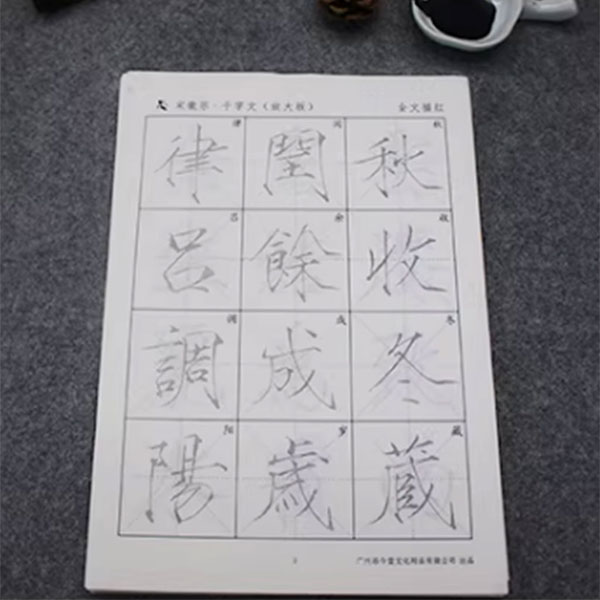 宋徽宗·千字文（放大版） 全文描红
秋收冬藏
閏餘成歲
律呂調陽
秋收冬藏
闰余成岁
律吕调阳
文化用品有限公司 出品